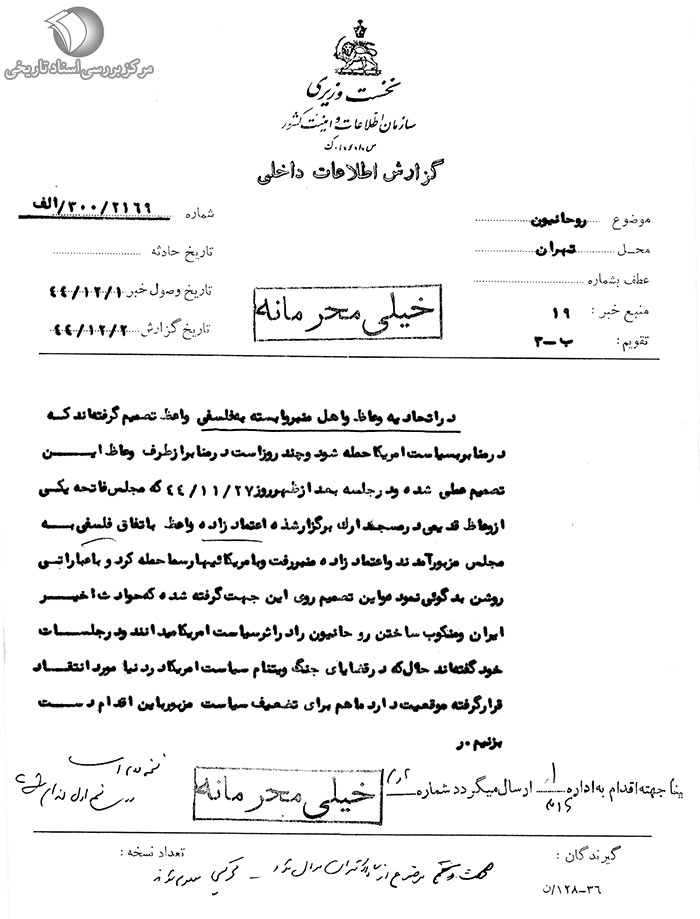 مرکز بررسی اسناد تاریخی
نخست وزیری
سازمان اطلاعات و امنیت کشور
گزارش اطلاعات داخلی
موضوع روحانیون
شماره ۳۰۰/۲۱۶۹/الف
محل تهران
تاریخ حادثه
عطف بشماره
تاریخ وصول خبر ۴۴/۱۲/۱
منبع خبر: ۱۹
تاریخ گزارش ۴۴/۱۲/۲
تقویم: ب-۳
خیلی محرمانه
در اتحادیه وعاظ و اهل منبر وابسته به فلسفی واعظ تصمیم گرفته‌اند که
در منابر بسیاست امریکا حمله شود و چند روز است در منابر از طرف وعاظ این
تصمیم عملی شده و در جلسه بعد از ظهر روز ۴۴/۱۱/۲۷ که مجلس فاتحه یکی
از وعاظ قدیمی در مسجد ارک برگزار شده اعتمادزاده واعظ باتفاق فلسفی به
مجلس مزبور آمدند و اعتمادزاده منبر رفت و بامریکائیها رسما حمله کرد و با عباراتی
روشن بدگوئی نمود و این تصمیم روی این جهت گرفته شده که حوادث اخیر
ایران و منکوب ساختن روحانیون را در اثر سیاست امریکا میدانند و در جلسات
خود گفته‌اند حال که در قضایای جنگ ویتنام سیاست امریکا در دنیا مورد انتقاد
قرار گرفته موقعیت دارد ما هم برای تضعیف سیاست مزبور باین اقدام دست
بزنیم. ر
بنا جهته اقدام به اداره ارسال میگردد شماره
خیلی محرمانه
گیرندگان:
تعداد نسخه:
۳۶-۱۲۸/ن